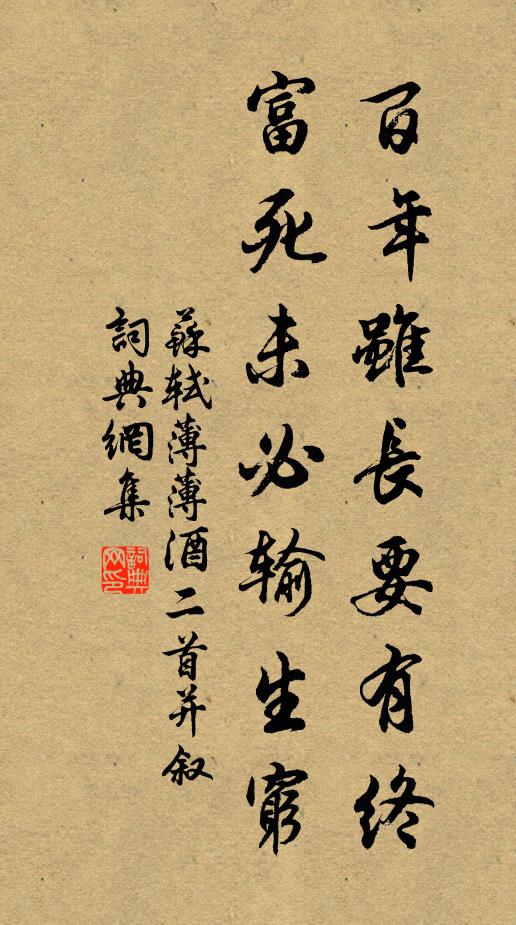 百年雖長要有終
富死未必輸生窮
蘇軾薄薄酒二首并叙
詞典網集
詞典
网印